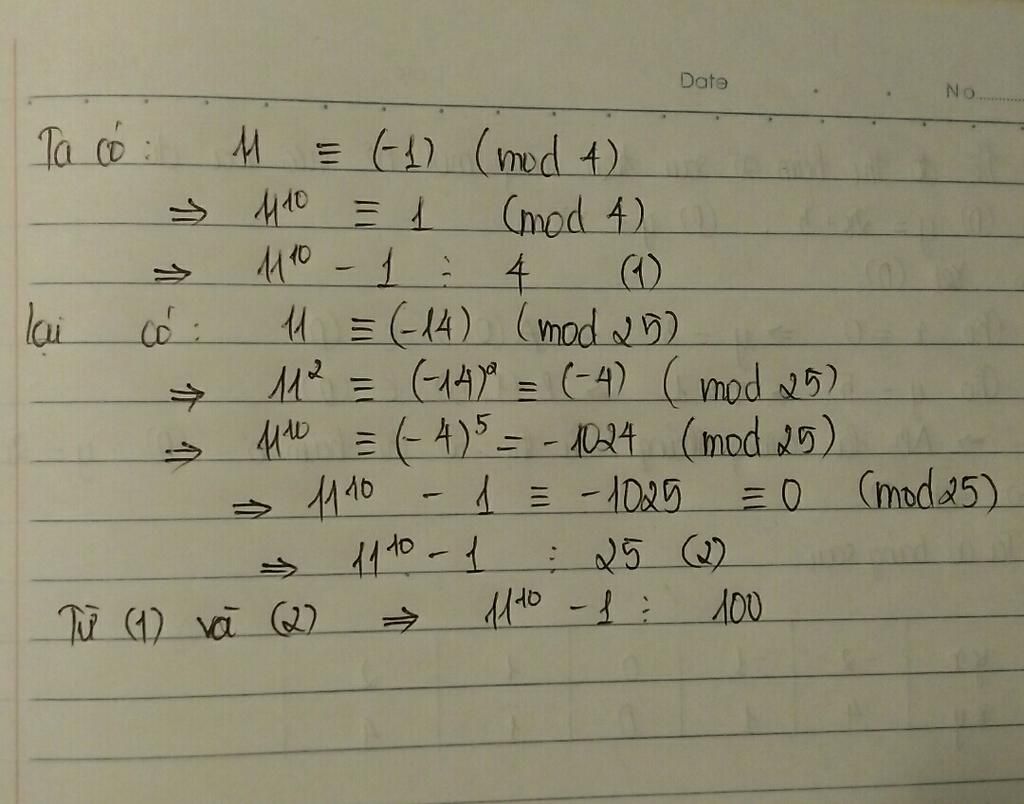 Date
No.........
Ta có: 11 ≡ (-1) (mod 4)
⇒ 11¹⁰ ≡ 1 (mod 4)
⇒ 11¹⁰ - 1 ⋮ 4 (1)
lại có: 11 ≡ (-14) (mod 25)
⇒ 11² ≡ (-14)² ≡ (-4) (mod 25)
⇒ 11¹⁰ ≡ (-4)⁵ = -1024 (mod 25)
⇒ 11¹⁰ - 1 ≡ -1025 ≡ 0 (mod 25)
⇒ 11¹⁰ - 1 ⋮ 25 (2)
Từ (1) và (2) ⇒ 11¹⁰ - 1 ⋮ 100